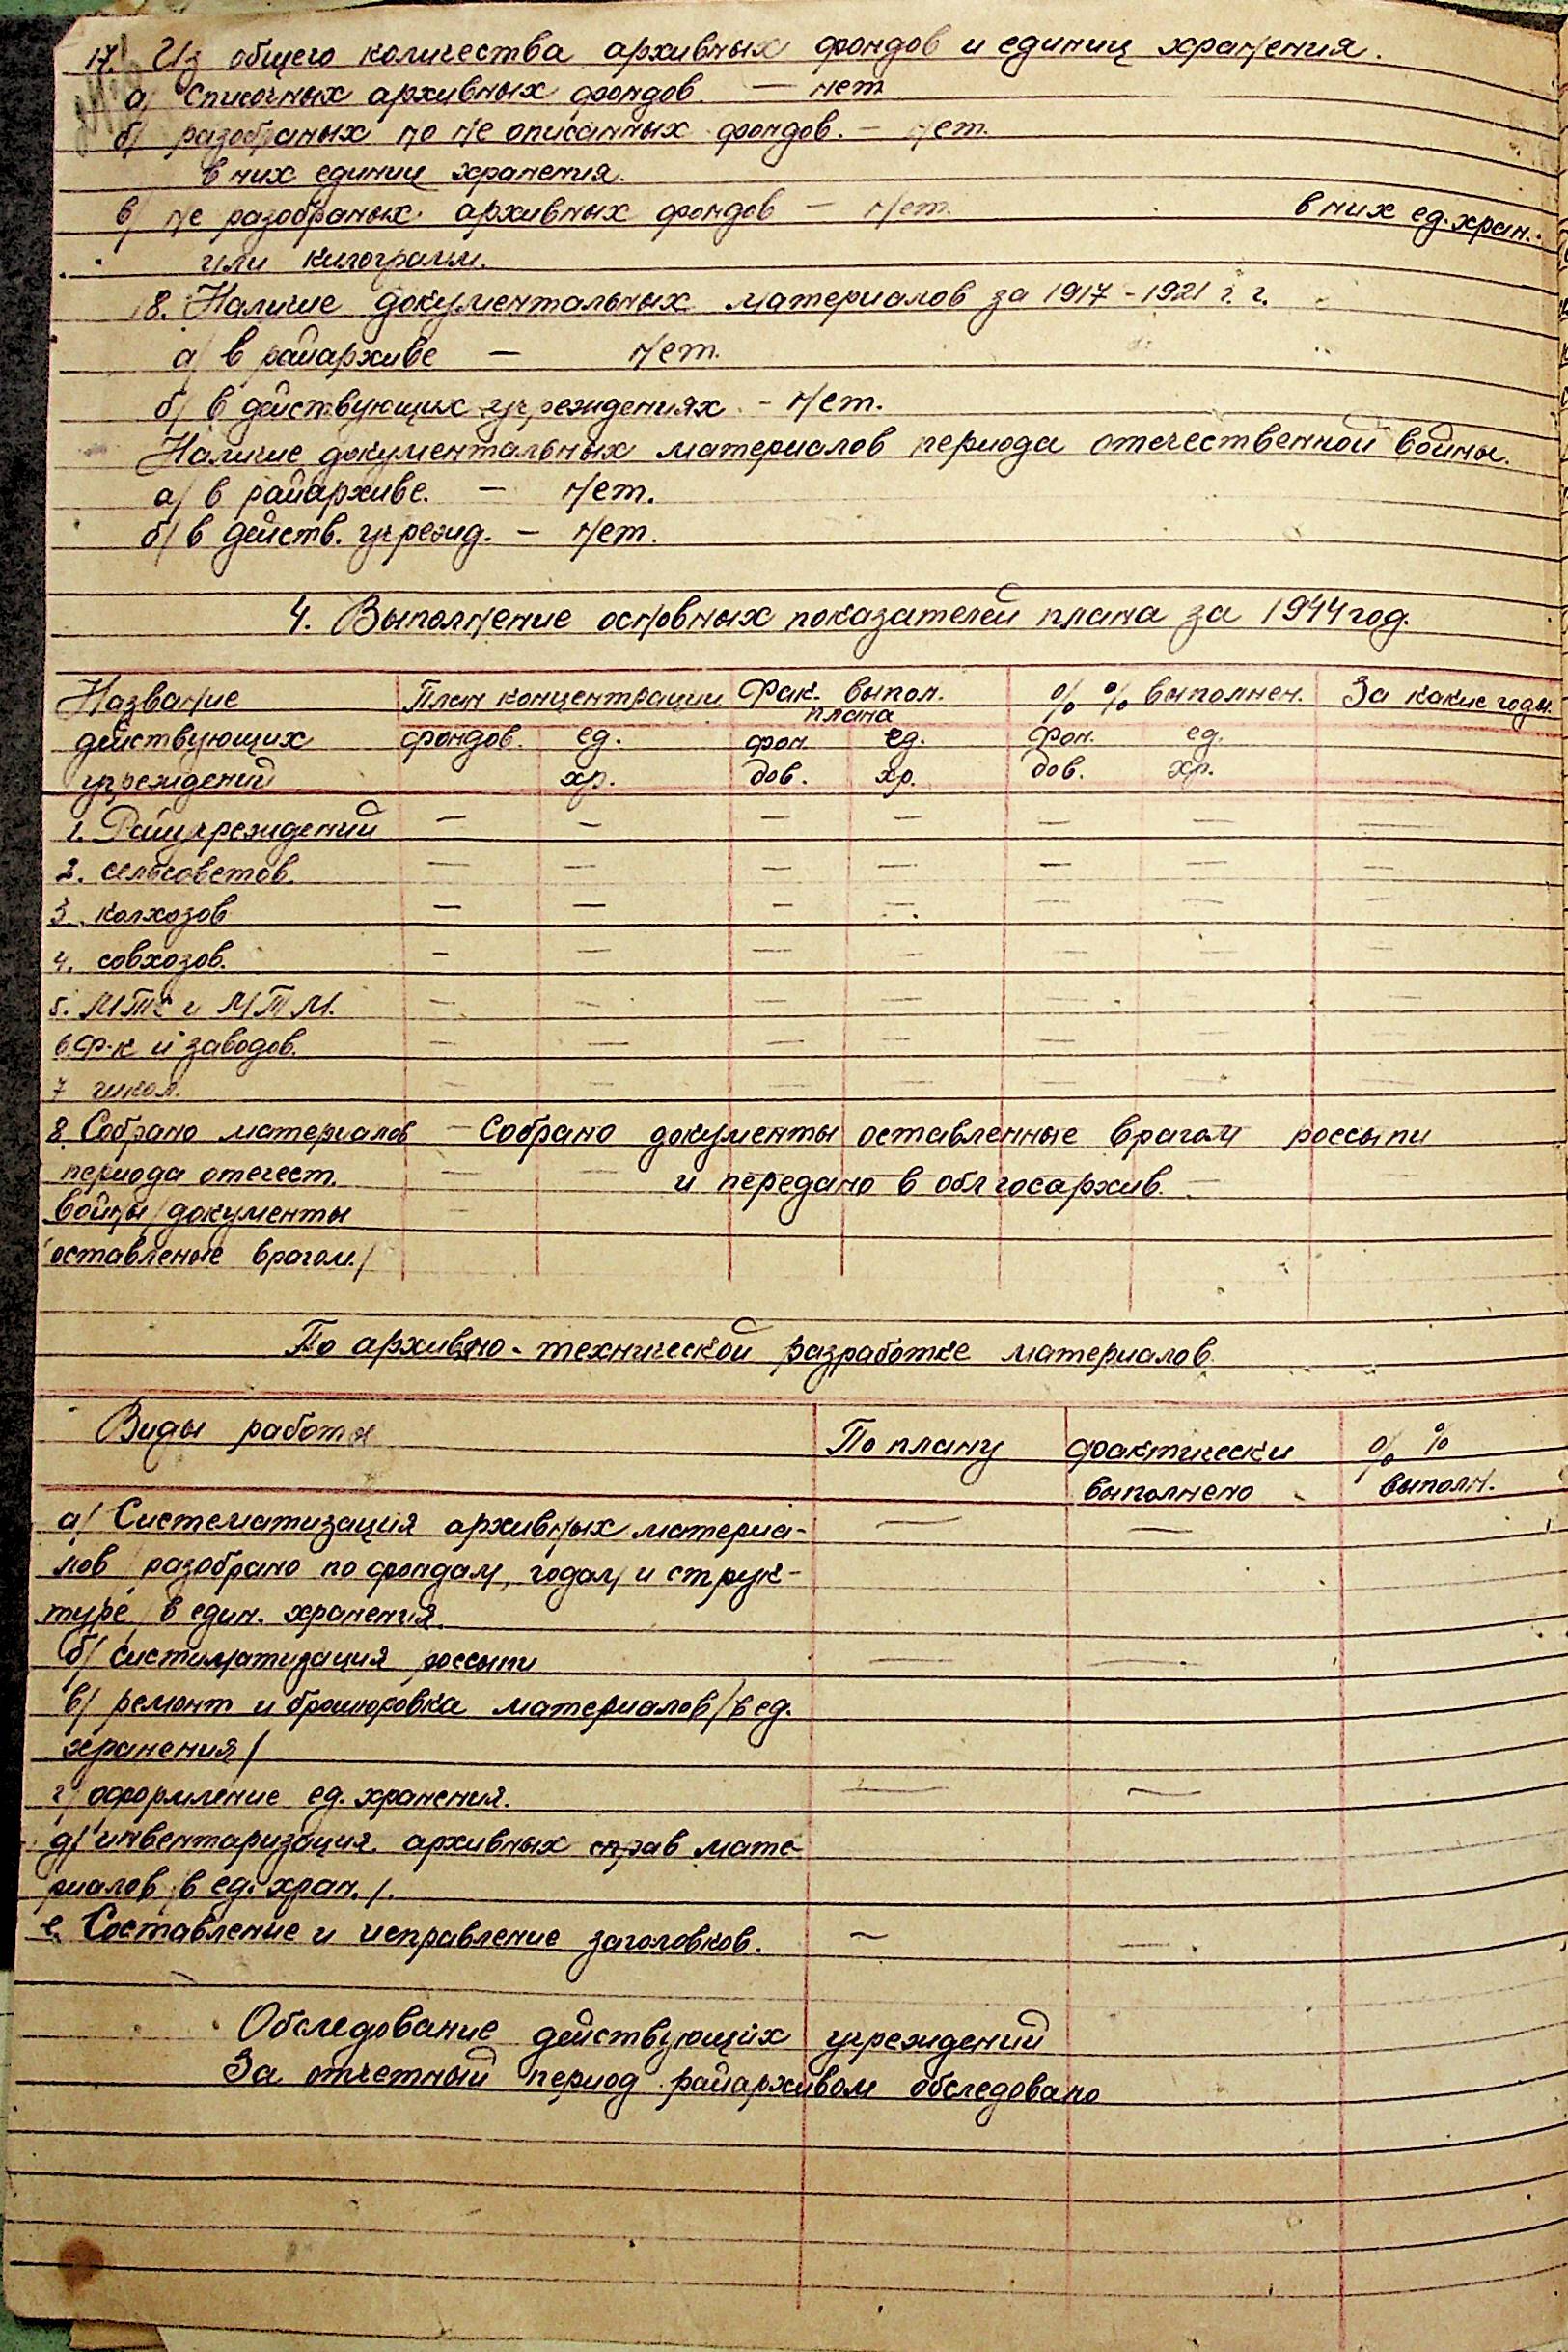 17. Из общего количества архивных фондов и единиц хранения.
а/ списочных архивных фондов. — нет
б/ разобраных но не описанных фондов. — нет.
в них единиц хранения.
в/ не разобраных. архивных фондов — нет. в них ед. хран.
или килограмм.
18. Наличие документальных материалов за 1917 - 1921 г. г.
а/ в райархиве — нет.
б/ в действующих учреждениях. - нет.
Наличие документальных материалов периода отечественной войны.
а/ в райархиве. — нет.
б/ в действ. учрежд. — нет.
4. Выполнение основных показателей плана за 1944 год.
Название План концентрации Фак. выпол. % % выполнен. За какие годы.
плана
действующих фондов. ед. фон ед. Фон. ед.
учреждений хр. дов. хр. дов. хр.
1. Райучреждений — — — — — — —
2. сельсоветов. — — — — — — —
3. колхозов — — — — — — —
4. совхозов. — — — — — — —
5. МТС и МТМ. — — — — — — —
6 Ф-к и заводов. — — — — — — —
7 школ. — — — — — — —
8. Собрано материалов — Собрано документы оставленные врагом россыпи
периода отечест. — — и передано в облгосархив. —
войны /документы —
оставленые врагом./
По архивно - технической разработке материалов.
Виды работы По плану фактически % %
выполнено выполн.
а/ Систематизация архивных материа- — —
лов /разобрано по фондам, годам и струк-
туре, в един. хранения.
б/ систиматизация россыпи — —
в/ ремонт и брошюровка материалов /в ед.
хранения/
г/ оформление ед. хранения. — —
д/ инвентаризация. архивных справ мате-
риалов /в ед. хран. /.
е. Составление и исправление заголовков. — —
Обследование действующих учреждений
За отчетный период райархивом обследовано